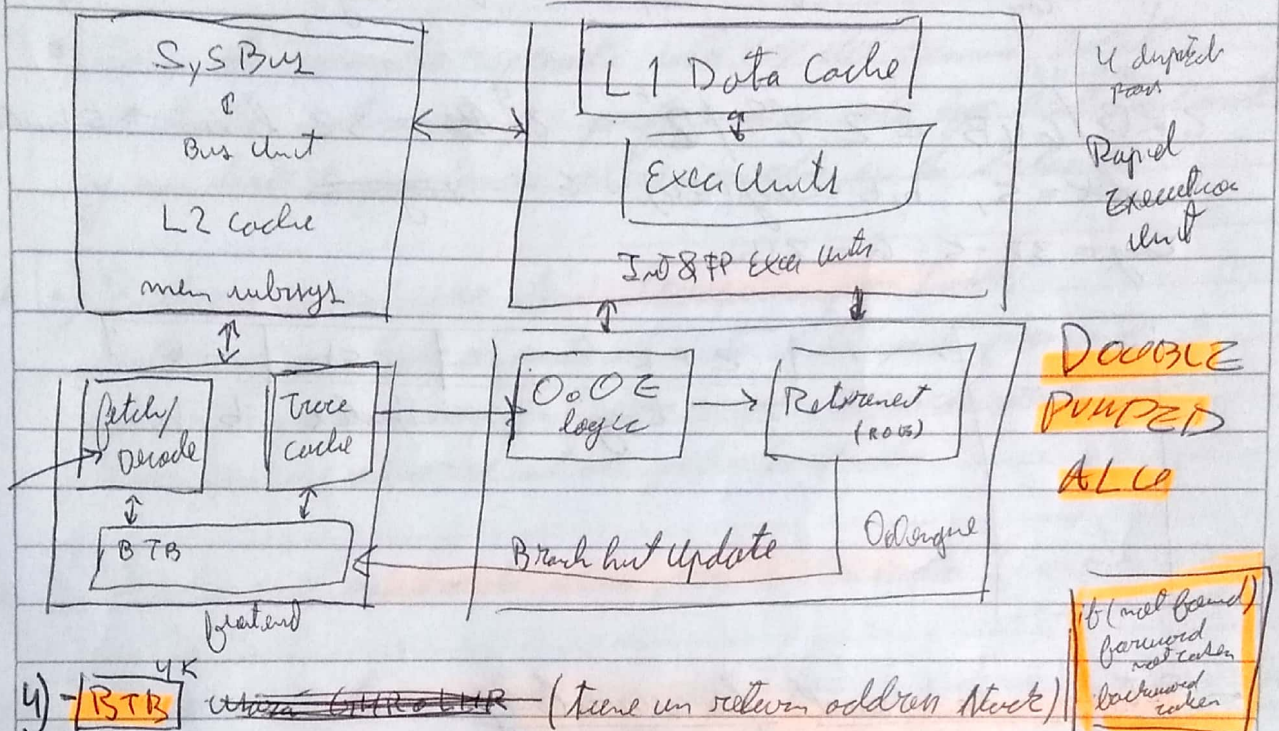 SysBus
Bus Unit
L2 cache
mem subsys
L1 Data Cache
Exec Units
Int & FP Exec Units
4 dispatch
Rapid
Execution
Unit
fetch/
Decode
Trace
cache
BTB
frontend
O.O E
logic
Retirement
(ROB)
Branch hist Update
OoO engine
DOUBLE
PUMPED
ALU
if (not found)
forward
not taken
backward
taken
4K
4) - BTB (tiene un return address stack)